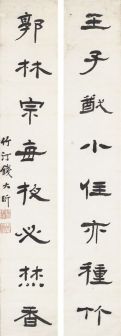 王子猷小住亦種竹
郭林宗每夜必焚香
竹汀錢大昕